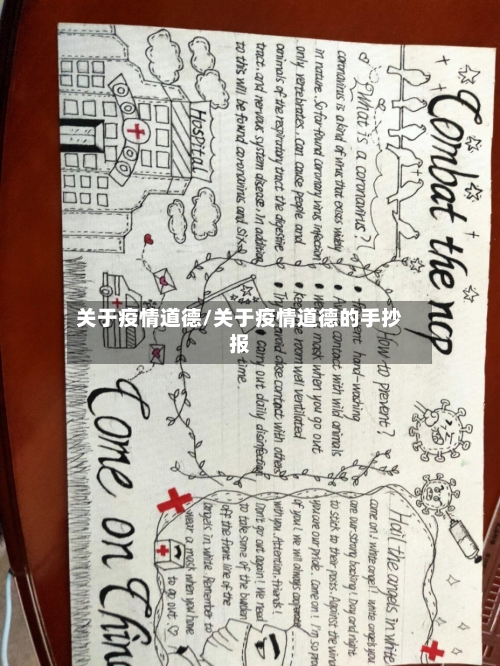 Combat the ncp
What is a coronavirus?
coronavirus is a kind of virus that exists widely
in nature. So far found coronary virus infection
only vertebrates. Can cause people and
animals of the respiratory tract, the digestive
tract, and nervous system disease. In addition
to this will be found coronavirus and
Hospital
How to prevent?
hand-washing
contact with wild animals
mask when you go out
room well ventilated
close contact with others
Carry out daily disinfection
time.
关于疫情道德/关于疫情道德的手抄
报
Hail the angels in white
come on! white angel! white angels you
are our strong backing! Day and night
to stick to their posts. Against the wind
you are our pride. Come on! I'm so
of you! We will always cooperate
with you. Attention, friends!
Don't go out again! We need
to take some of the burden
off the front line of the
angels in white. Remember to
wear a mask when you have
to go out.
Come on